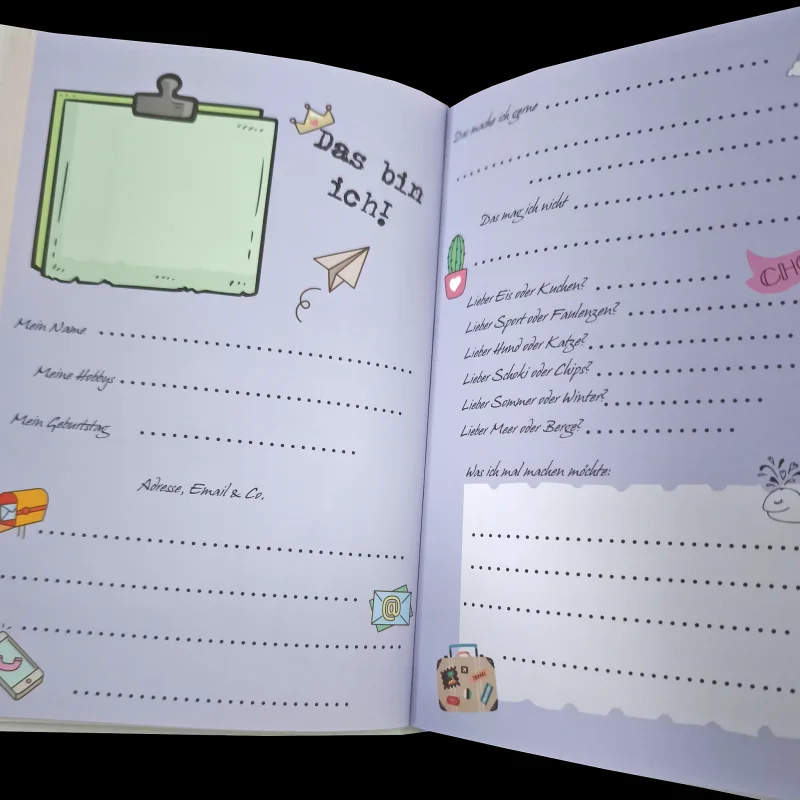 Das bin
ich!
Mein Name
Meine Hobbys
Mein Geburtstag
Adresse, Email & Co.
@
Das mache ich gerne
Das mag ich nicht
Lieber Eis oder Kuchen?
Lieber Sport oder Faulenzen?
Lieber Hund oder Katze?
Lieber Schoki oder Chips?
Lieber Sommer oder Winter?
Lieber Meer oder Berge?
Was ich mal machen möchte:
TRAVEL